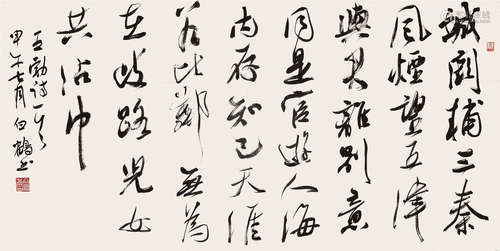 城闕輔三秦
風煙望五津
與君離別意
同是宦游人海
內存知己天涯
若比鄰無為
在歧路兒女
共沾巾
王勃詩一首
甲午七月白鶴書